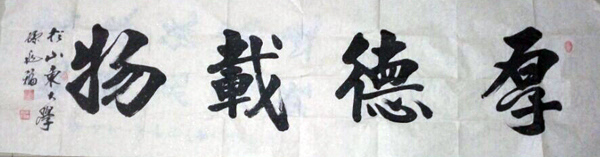 厚德載物
於山東大學